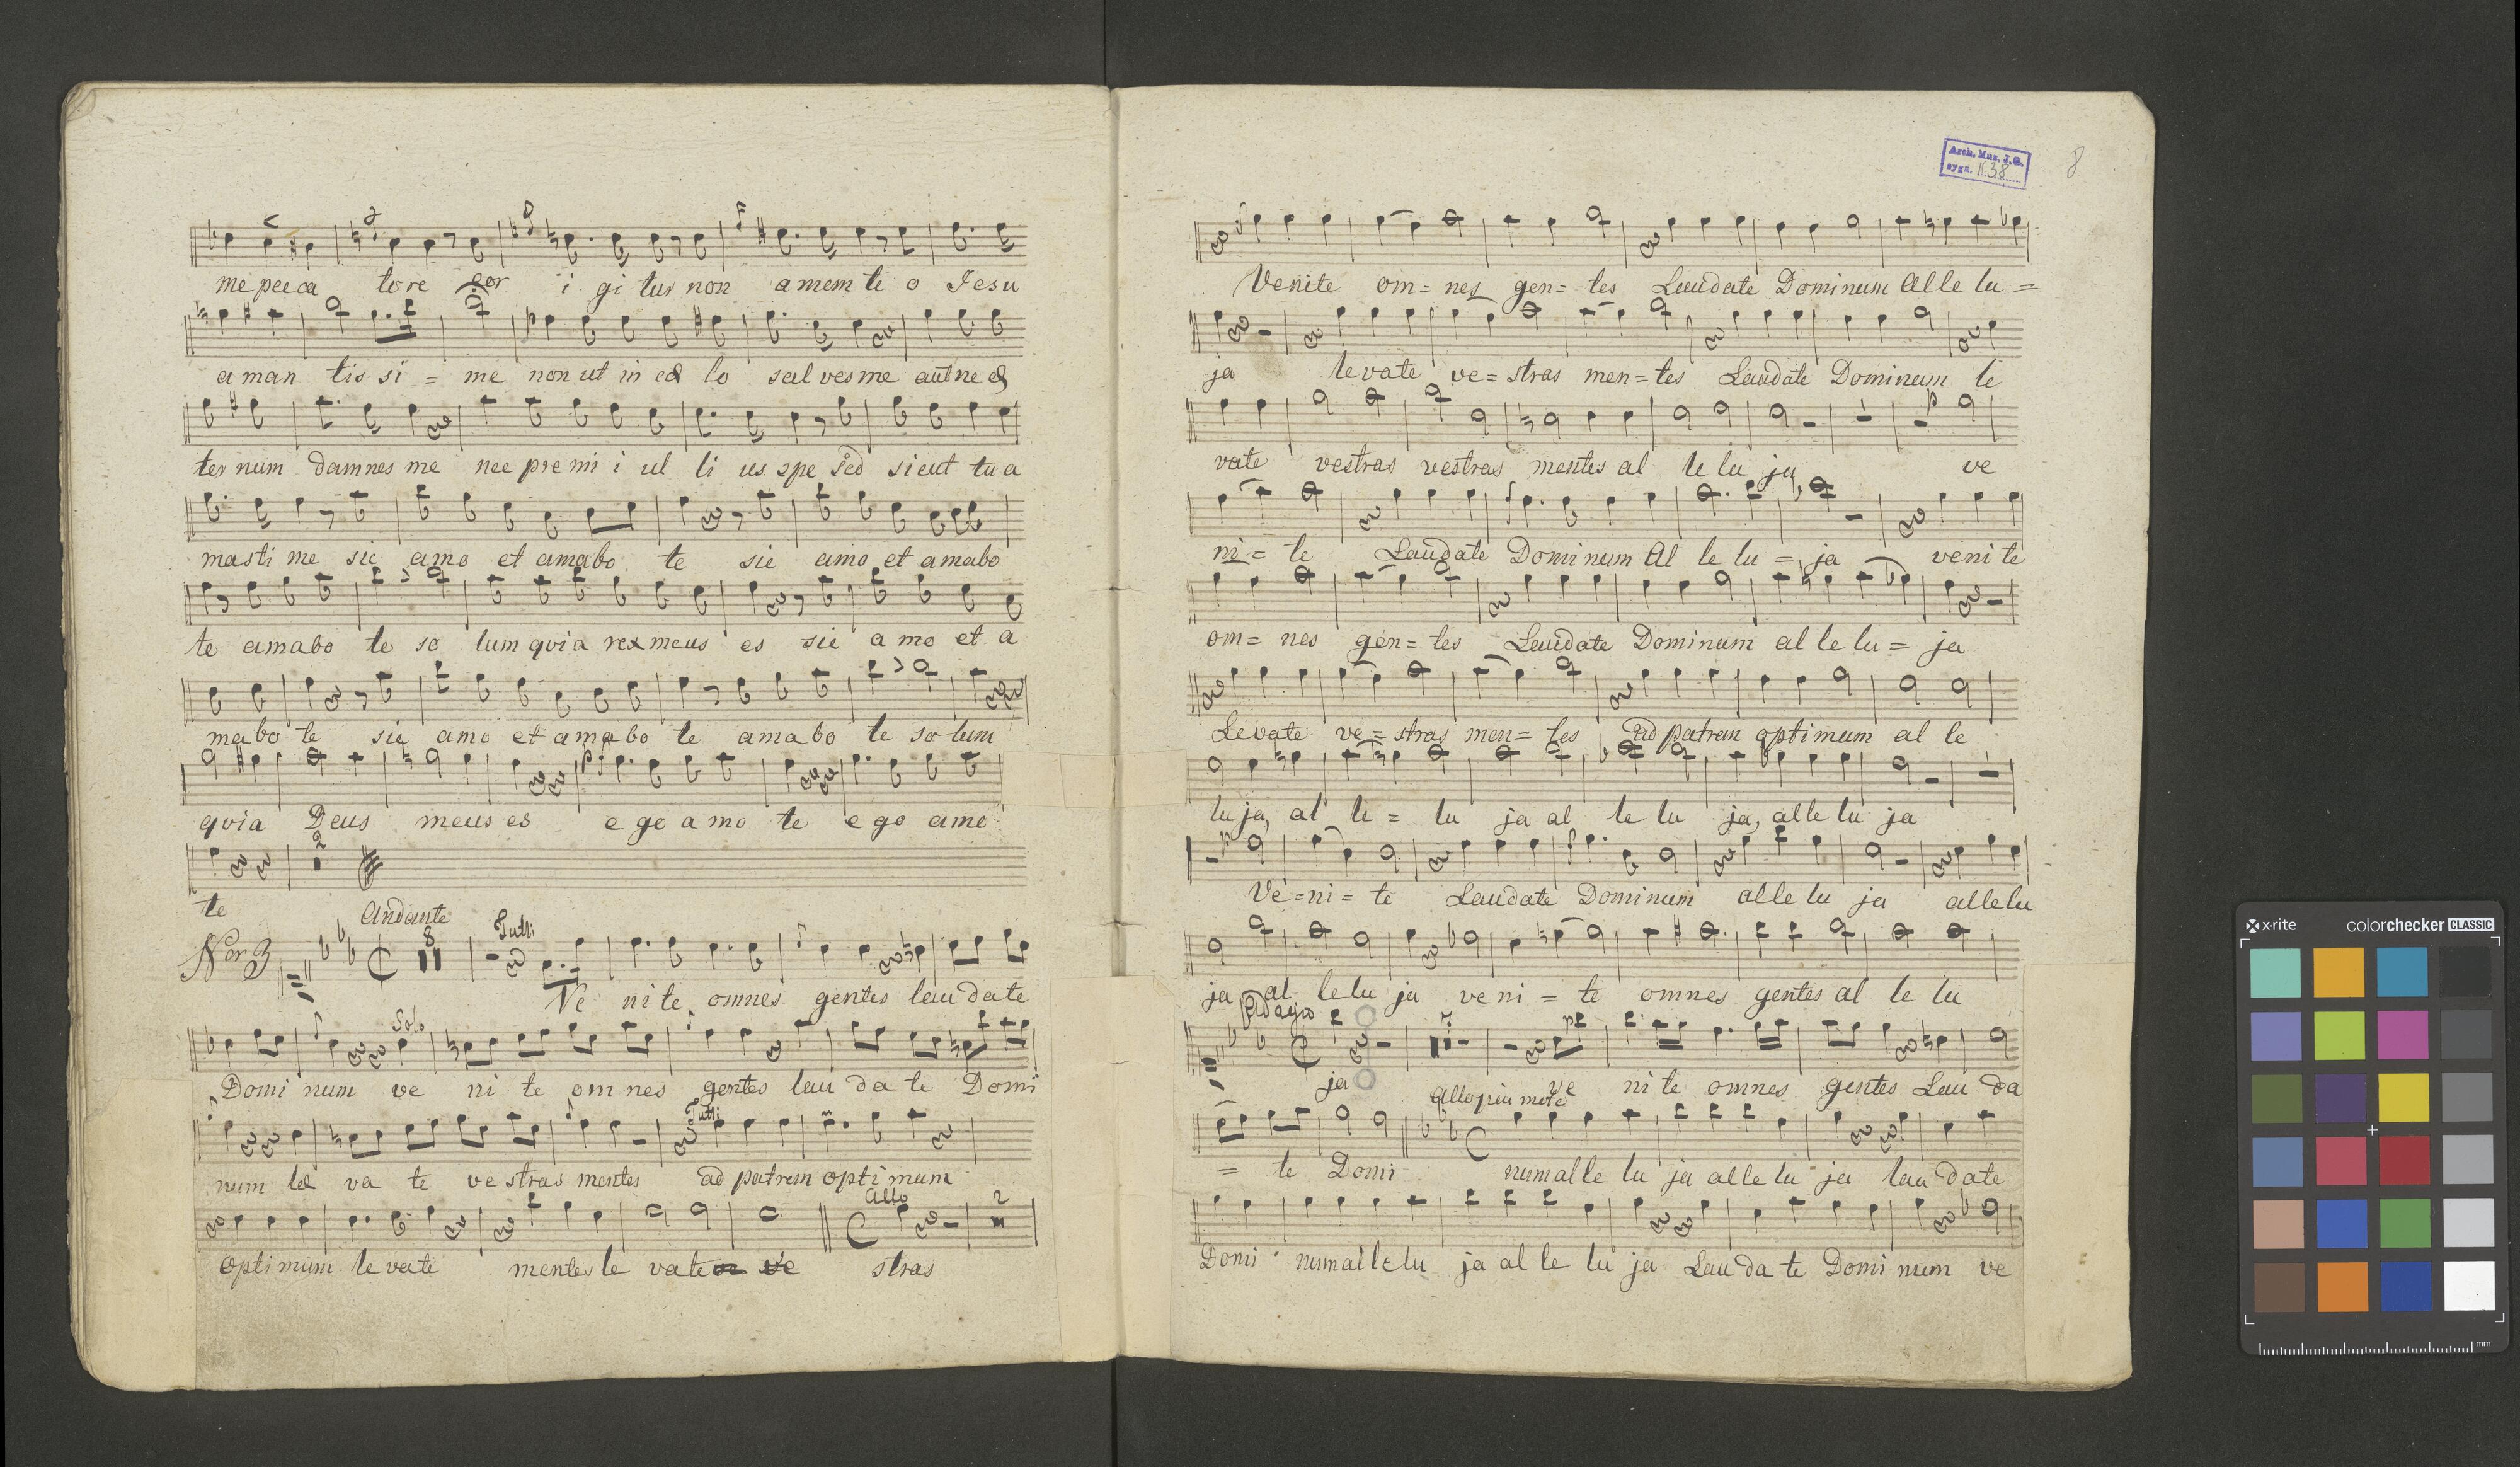 me pecca tore cor i gi tur non amem te o Jesu
aman tis si = me non ut in cœ lo sal ves me aut ne æ
ter num damnes me nec pre mi i ul li us spe sed sicut tu a
masti me sic amo et amabo te sic amo et amabo
te amabo te so lum qvia rex meus es sic a mo et a
mabo te sic amo et amabo te amabo te solum
qvia Deus meus es ego amo te ego amo
2
te
Andante
Nor 3 8 Tutti
Ve nite omnes gentes laudate
Solo
Domi num ve ni te om nes gentes lau da te Domi
Tutti
num le va te vestras mentes ad patrem optimum
Allo 2
optimum levate mentes le vate ve stras
Arch. Muz. J.G.
sygn. II.38
8
Venite om= nes gen= tes Laudate Dominum Alle lu =
ja levate ve= stras men= tes Laudate Dominum le
vate vestras vestras mentes al le lu ja ve
ni = te Laudate Dominum Al le lu = ja venite
om= nes gen= tes Laudate Dominum al le lu = ja
Levate ve= stras men= tes ad patrem optimum al le
lu ja, al le = lu ja al le lu ja, alle lu ja
Ve=ni= te Laudate Dominum alle lu ja allelu
ja al le lu ja ve ni = te omnes gentes al le lu
Adagio 7
ja ve ni te omnes gentes Lau da
Allo piu
= te Domi num alle lu ja alle lu ja lau date
Domi num alle lu ja al le lu ja Lau da te Domi num ve
x-rite colorchecker CLASSIC
mm